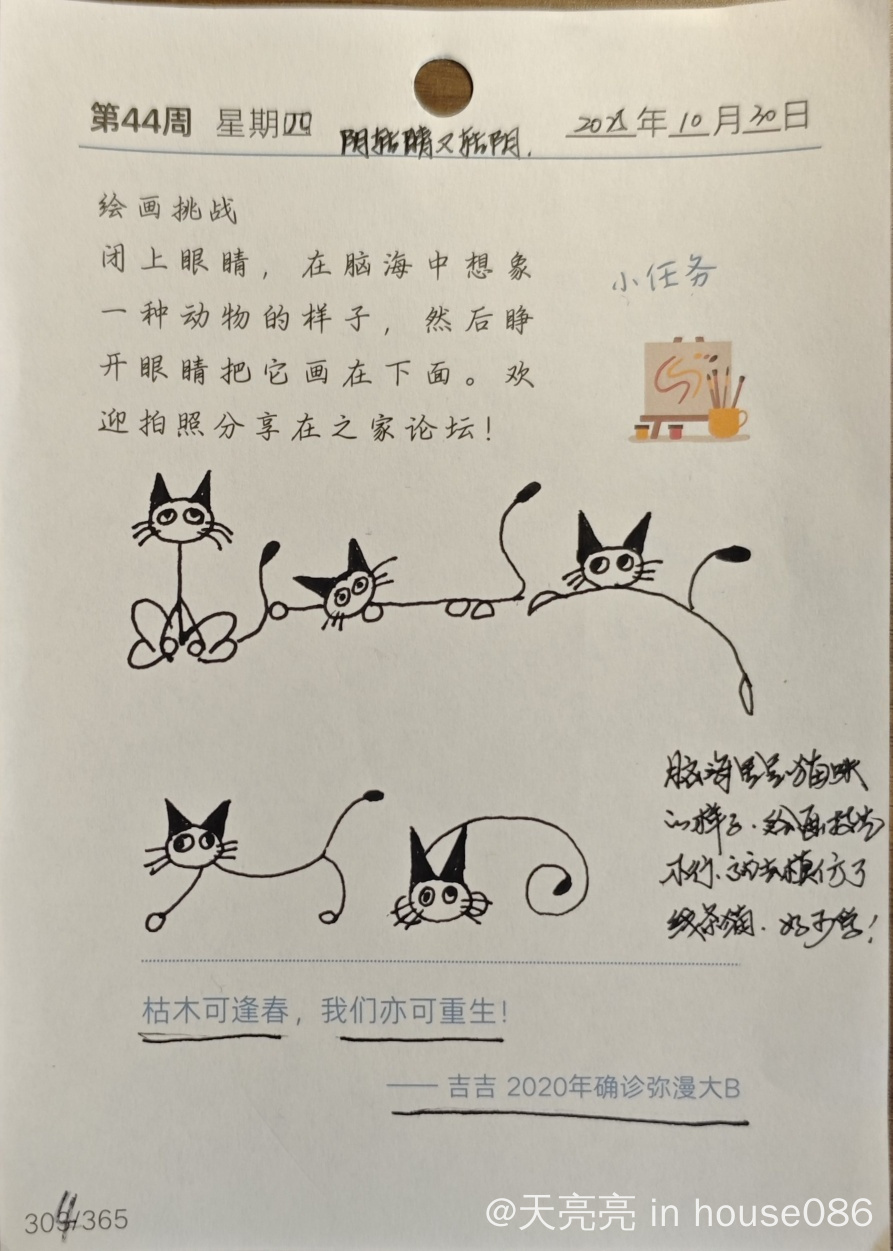 第44周 星期四 阴转晴又转阴. 2025年10月30日
绘画挑战
闭上眼睛，在脑海中想象
一种动物的样子，然后睁
开眼睛把它画在下面。欢
迎拍照分享在之家论坛！
小任务
脑海里是猫咪
的样子.绘画技术
不行.就去模仿了
线条猫.好可爱！
枯木可逢春，我们亦可重生！
—— 吉吉 2020年确诊弥漫大B
/365
@天亮亮 in house086